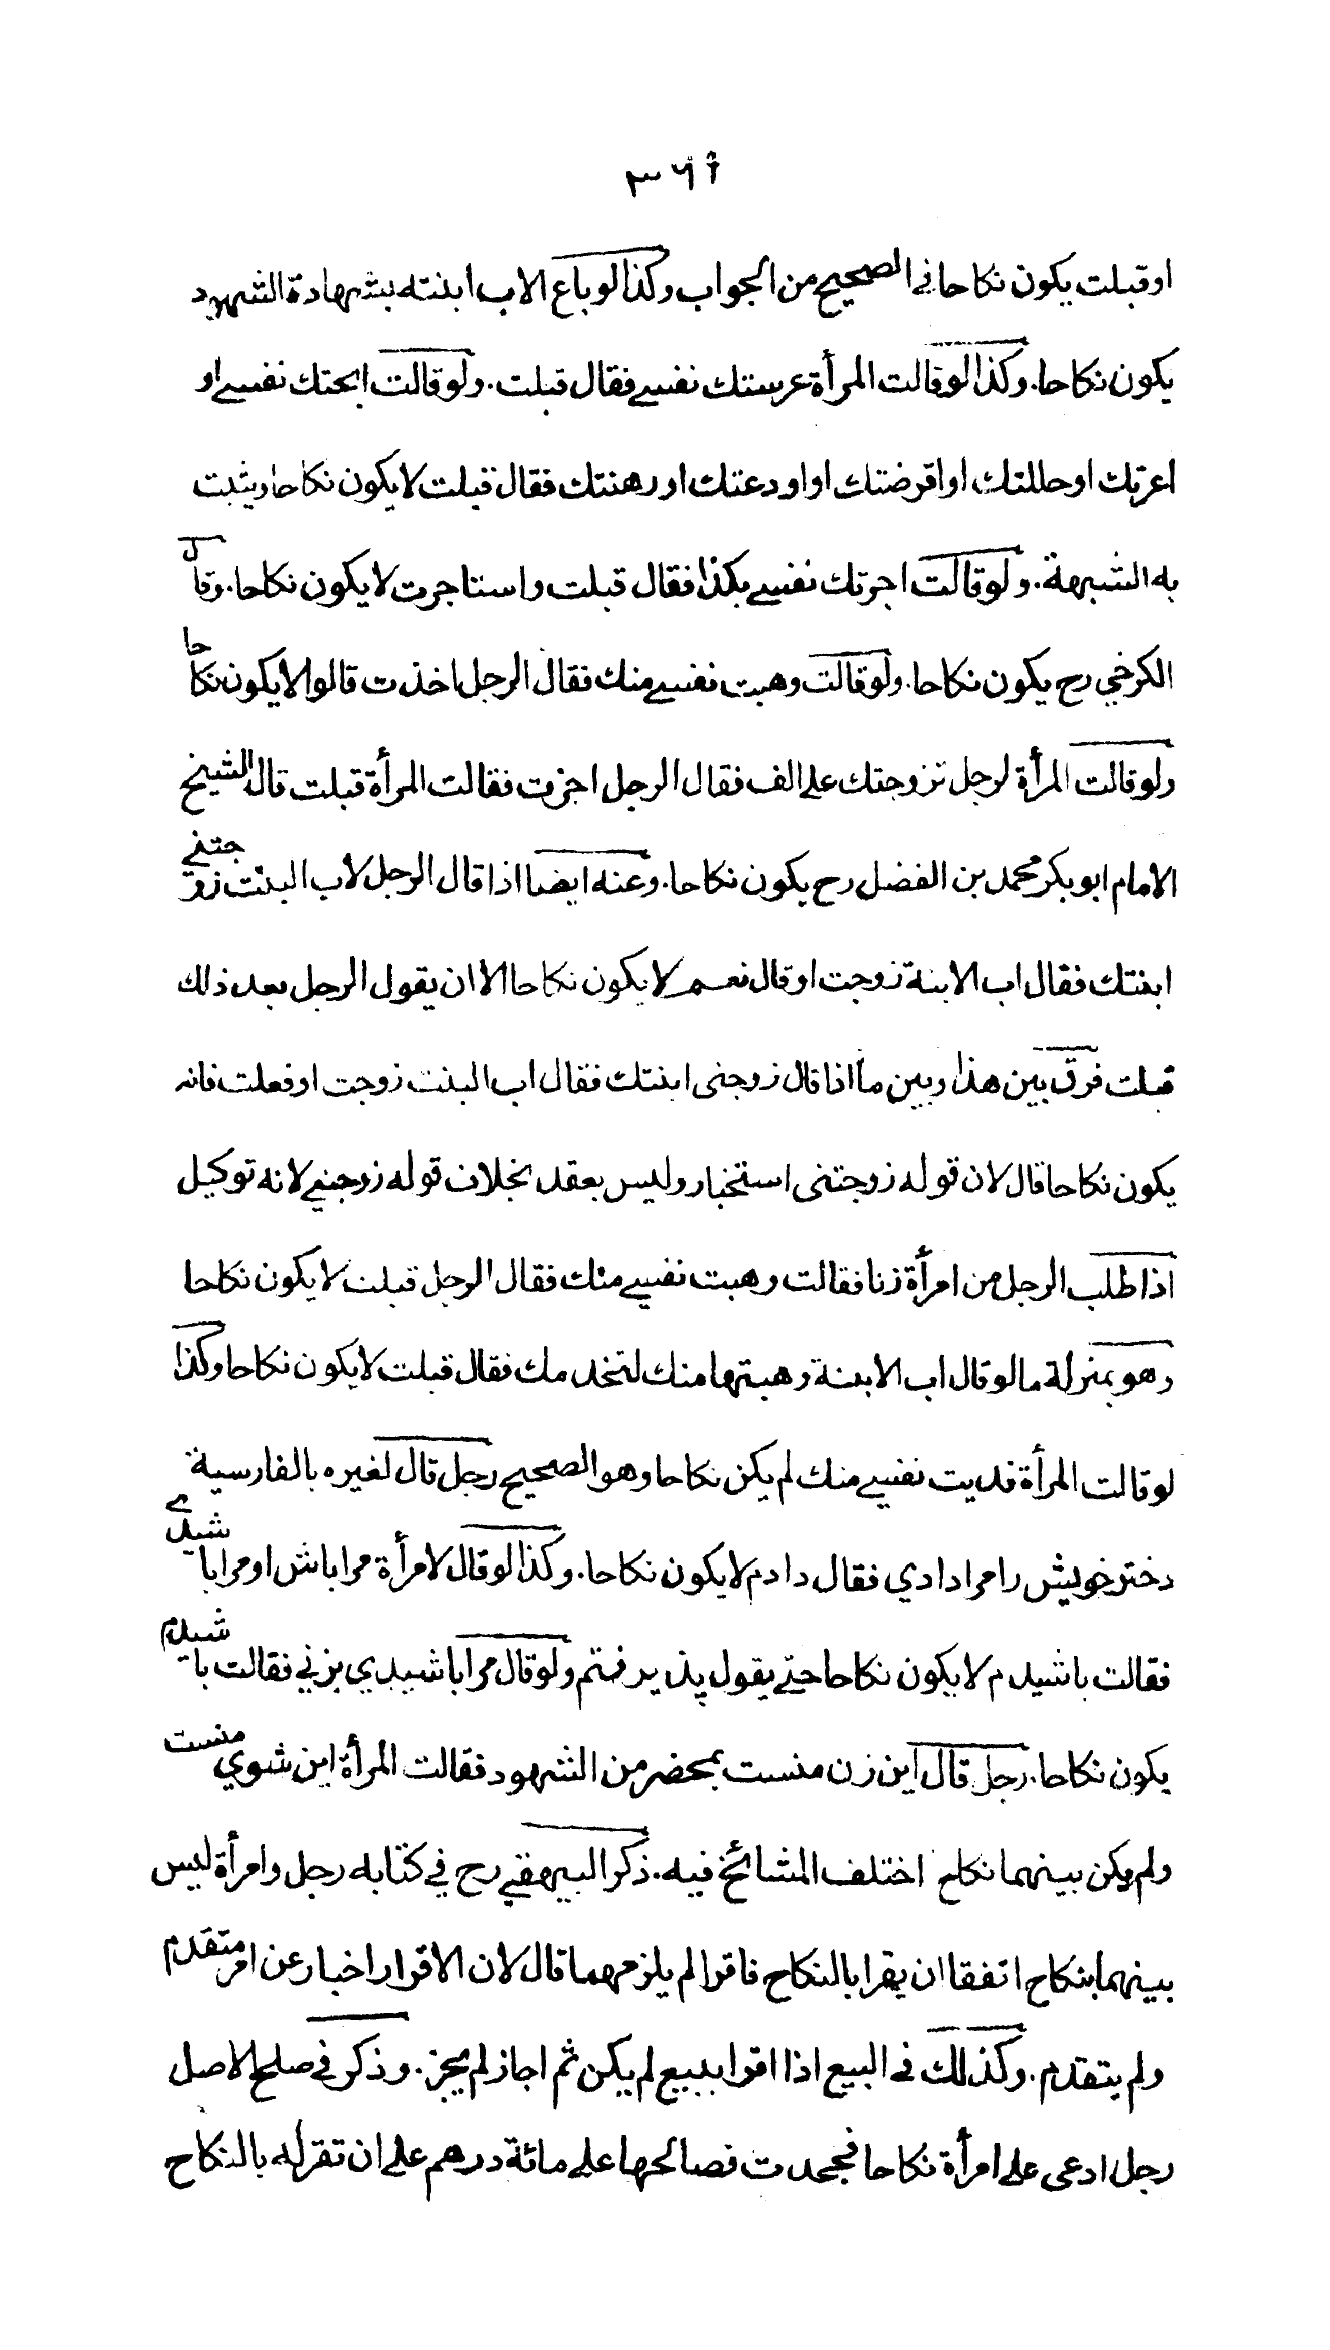 ٣٦١
او قبلت يكون نكاحا في الصحيح من الجواب وكذا لو باع الاب ابنته بشهادة الشهود
يكون نكاحا. وكذا لو قالت المرأة عرستك نفسي فقال قبلت. ولو قالت ابحتك نفسي او
اعرتك او حللتك او اقرضتك او اودعتك او رهنتك فقال قبلت لا يكون نكاحا ويثبت
به الشبهة. ولو قالت اجرتك نفسي بكذا فقال قبلت واستاجرت لا يكون نكاحا. وقال
الكرخي رح يكون نكاحا. ولو قالت وهبت نفسي منك فقال الرجل اخذت قالوا لا يكون نكاحا
ولو قالت المرأة لرجل تزوجتك على الف فقال الرجل اجزت فقالت المرأة قبلت قال الشيخ
الامام ابو بكر محمد بن الفضل رح يكون نكاحا. وعنه ايضا اذا قال الرجل لاب البنت زوجتني
ابنتك فقال اب الابنة زوجت او قال نعم لا يكون نكاحا الا ان يقول الرجل بعد ذلك
قبلت فرق بين هذا وبين ما اذا قال زوجني ابنتك فقال اب البنت زوجت او فعلت فانه
يكون نكاحا قال لان قوله زوجتني استخبار وليس بعقد بخلاف قوله زوجني لانه توكيل
اذا طلب الرجل من امرأة زنا فقالت وهبت نفسي منك فقال الرجل قبلت لا يكون نكاحا
وهو بمنزلة ما لو قال اب الابنة وهبتها منك لتخدمك فقال قبلت لا يكون نكاحا وكذا
لو قالت المرأة فديت نفسي منك لم يكن نكاحا وهو الصحيح رجل قال لغيره بالفارسية
دختر خويش را مرا دادي فقال دادم لا يكون نكاحا. وكذا لو قال لامرأة مرا باش او مرا باشيدي
فقالت باشيدم لا يكون نكاحا حتى يقول پذيرفتم ولو قال مرا باشيدي بزني فقالت باشيدم
يكون نكاحا. رجل قال اين زن منست بمحضر من الشهود فقالت المرأة اين شوي منست
ولم يكن بينهما نكاح اختلف المشائخ فيه. ذكر البيهقي رح في كتابه رجل وامرأة ليس
بينهما بنكاح اتفقا ان يقرا بالنكاح فاقرا لم يلزمهما قال لان الاقرار اخبار عن امر متقدم
ولم يتقدم. وكذلك في البيع اذا اقرا ببيع لم يكن ثم اجاز لم يجز. وذكر في صلح الاصل
رجل ادعى على امرأة نكاحا فجحدت فصالحها على مائة درهم على ان تقر له بالنكاح